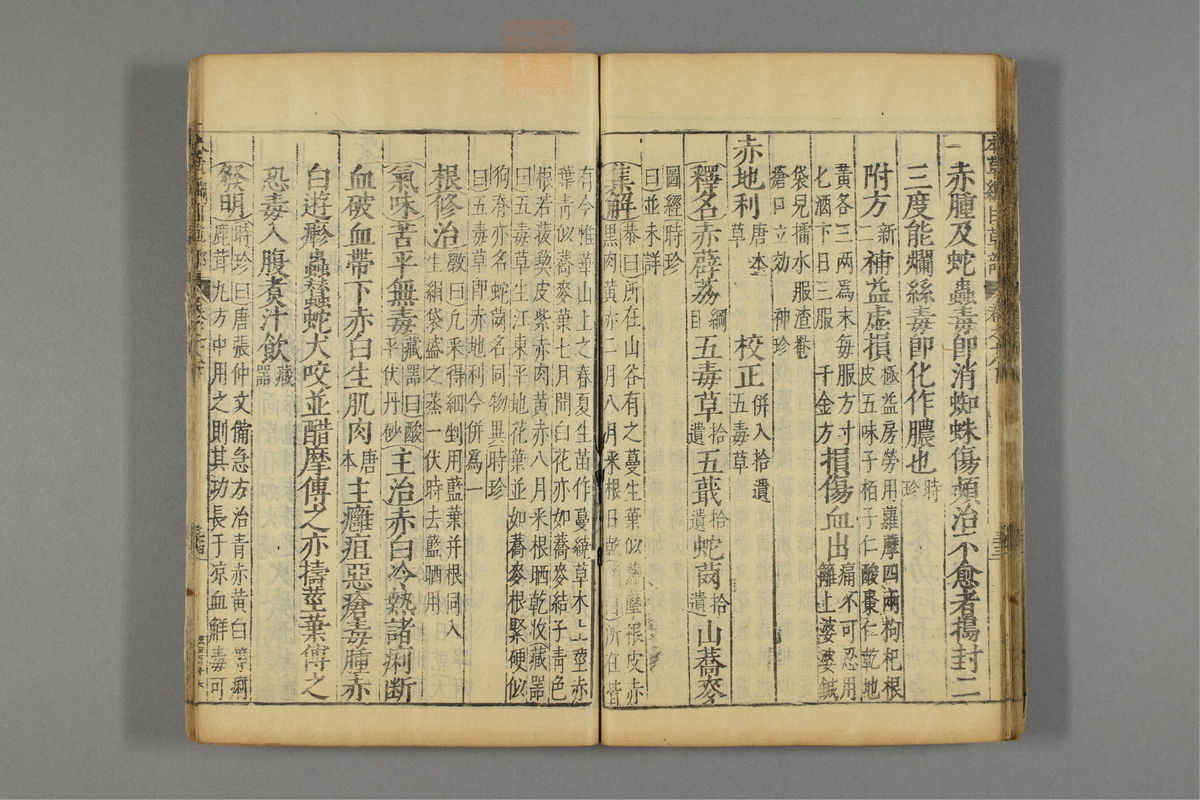 赤腫及蛇蟲毒即消蜘蛛傷頻治不愈者搗封二
三度能爛絲毒即化作膿也時珍
附方新二補益虛損極益房勞用蘿藦四兩枸杞根皮五味子栢子仁酸棗仁乾地
黃各三兩爲末每服方寸匕酒下日三服千金方損傷血出痛不可忍用籬上婆婆鍼
袋兒擂水服渣罨瘡口立効神珍
赤地利唐本草 校正併入拾遺五毒草
釋名赤薜荔綱目五毒草拾遺五蕺拾遺蛇䓖拾遺山蕎麥
圖經時珍曰並未詳
集解恭曰所在山谷有之蔓生葉似蘿摩根皮赤黑肉黃赤二月八月采根日乾曰所在皆
有今惟華山上之春夏生苗作蔓繞草木上莖赤葉青似蕎麥葉七月開白花亦如蕎麥結子青色
根若菝葜皮紫赤肉黃赤八月采根晒乾收藏器曰五毒草生江東平地花葉並如蕎麥根緊硬似
狗脊亦名蛇䓖名同物異時珍曰五毒草即赤地利今併爲一
根修治斅曰凡采得細剉用藍葉并根同入生絹袋盛之蒸一伏時去藍晒用
氣味苦平無毒藏器曰酸平伏丹砂主治赤白冷熱諸痢斷
血破血帶下赤白生肌肉唐本主癰疽惡瘡毒腫赤
白遊疹蟲蠶蛇犬咬並醋摩傅之亦擣莖葉傅之
恐毒入腹煮汁飲藏器
發明時珍曰唐張仲文備急方治青赤黃白等痢鹿茸丸方中用之則其功長于凉血解毒可